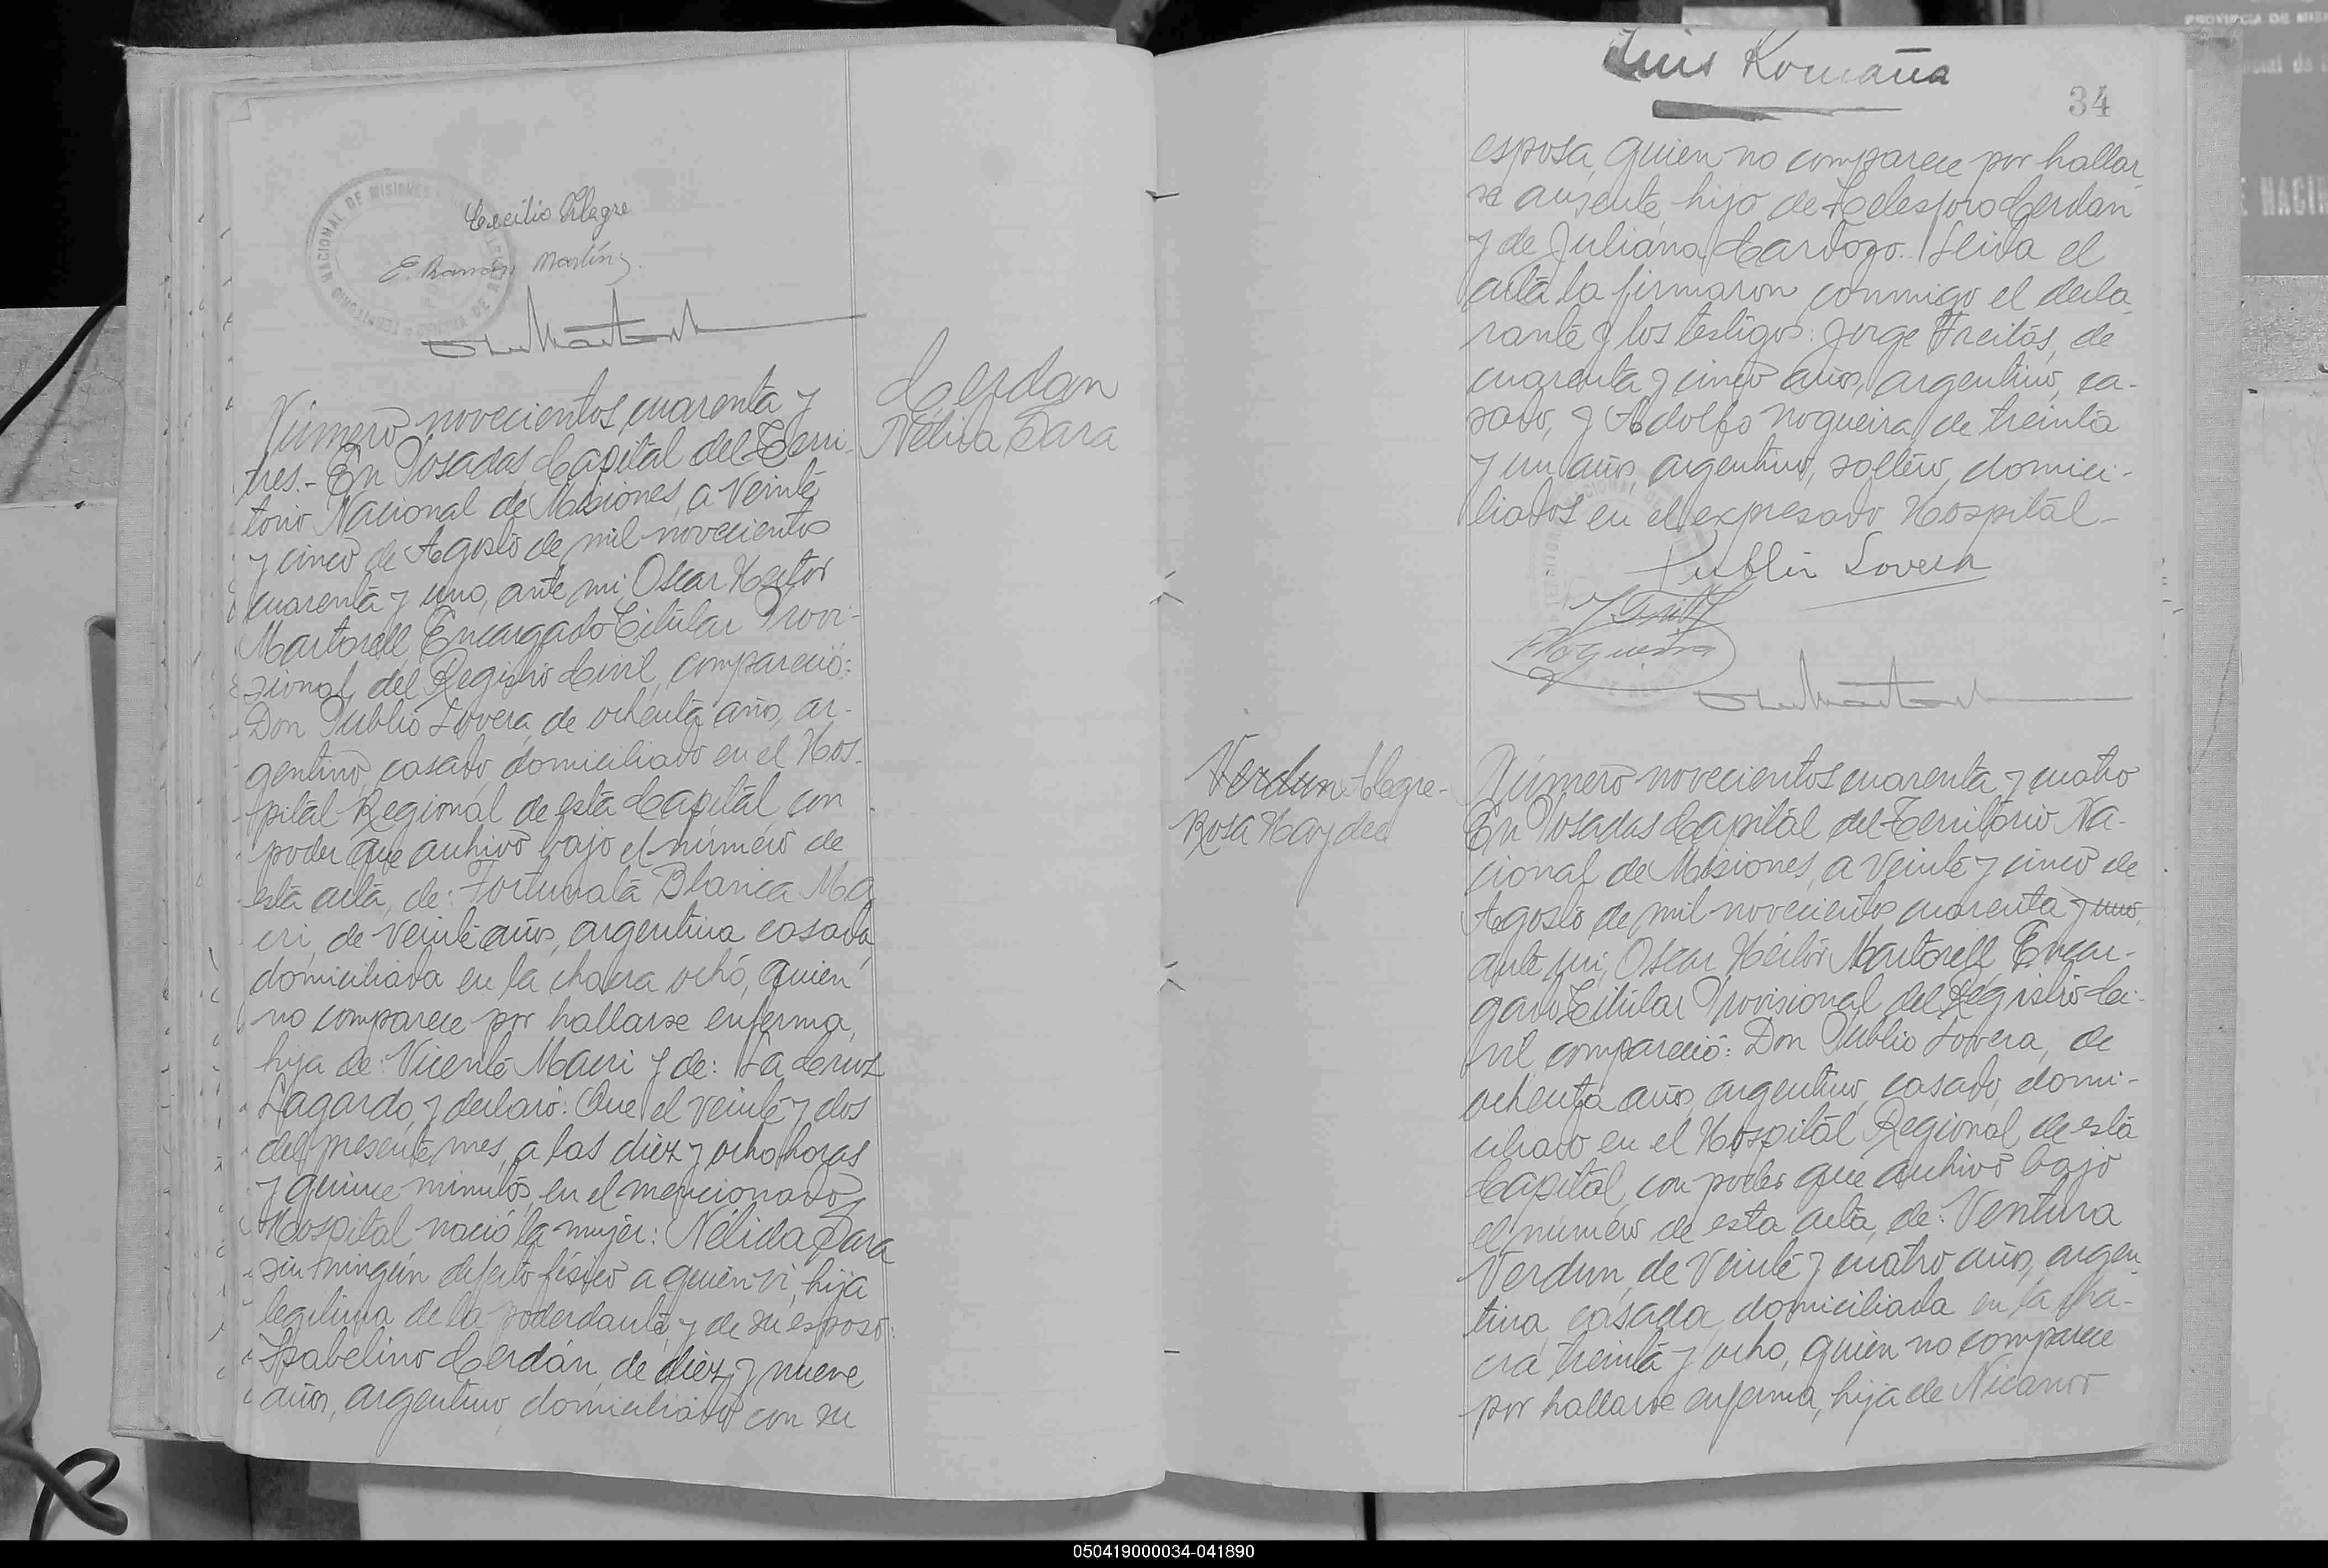 Cecilio Alegre
E. Ramón Martínez
Cerdan
Nélida Sara
Número novecientos cuarenta y
tres.- En Posadas, Capital del Terri-
torio Nacional de Misiones, a veinte
y cinco de Agosto de mil novecientos
cuarenta y uno, ante mi, Oscar Hector
Martorell, Encargado Titular Provi-
sional, del Registro Civil, compareció:
Don Publio Lovera, de ochenta años, ar-
gentino, casado, domiciliado en el Hos-
pital Regional de esta Capital, con
poder que archivo bajo el número de
esta acta, de: Fortunata Blanca Ma
cri, de veinte años, argentina casada,
domiciliada en la chacra ochó, quien
no comparece por hallarse enferma,
hija de: Vicente Macri y de: La Cruz
Lagardo, y declaró: Que el veinte y dos
del presente mes, a las diez y ocho horas
y quince minutos, en el mencionado
Hospital nació la mujer: Nélida Sara
sin ningún defecto físico a quien ví, hija
legitima de la poderdante, y de su esposo:
Isabelino Cerdán, de diez y nueve
años, argentino, domiciliado con su
Luis Romaña
34
esposa, quien no comparece por hallar
se ausente, hijo de Telesforo Cerdan
y de Juliana Cardozo.. Leida el
acta la firmaron conmigo el decla
rante y los testigos: Jorge Freitas, de
cuarenta y cinco años, argentino, ca-
sado, y Adolfo Nogueira, de treinta
y un años, argentino, soltero, domici-
liados en el expresado Hospital-
Publio Lovera
Nogueira
Verdun Alegre-
Rosa Haydee
Número novecientos cuarenta y cuatro
En Posadas Capital del Territorio Na-
cional de Misiones, a veinte y cinco de
Agosto de mil novecientos cuarenta y uno,
ante mi, Oscar Héctor Martorell, Encar-
gado Titular Provisional del Registro Ci-
vil, compareció: Don Publio Lovera, de
ochenta años, argentino, casado, domi-
ciliado en el Hospital Regional, de esta
Capital, con poder que archivo bajo
el número de esta acta, de: Ventura
Verdun, de veinte y cuatro años, argen
tina, casada, domiciliada en la cha-
cra treinta y ocho, quien no comparece
por hallarse enferma, hija de Nicanor
050419000034-041890